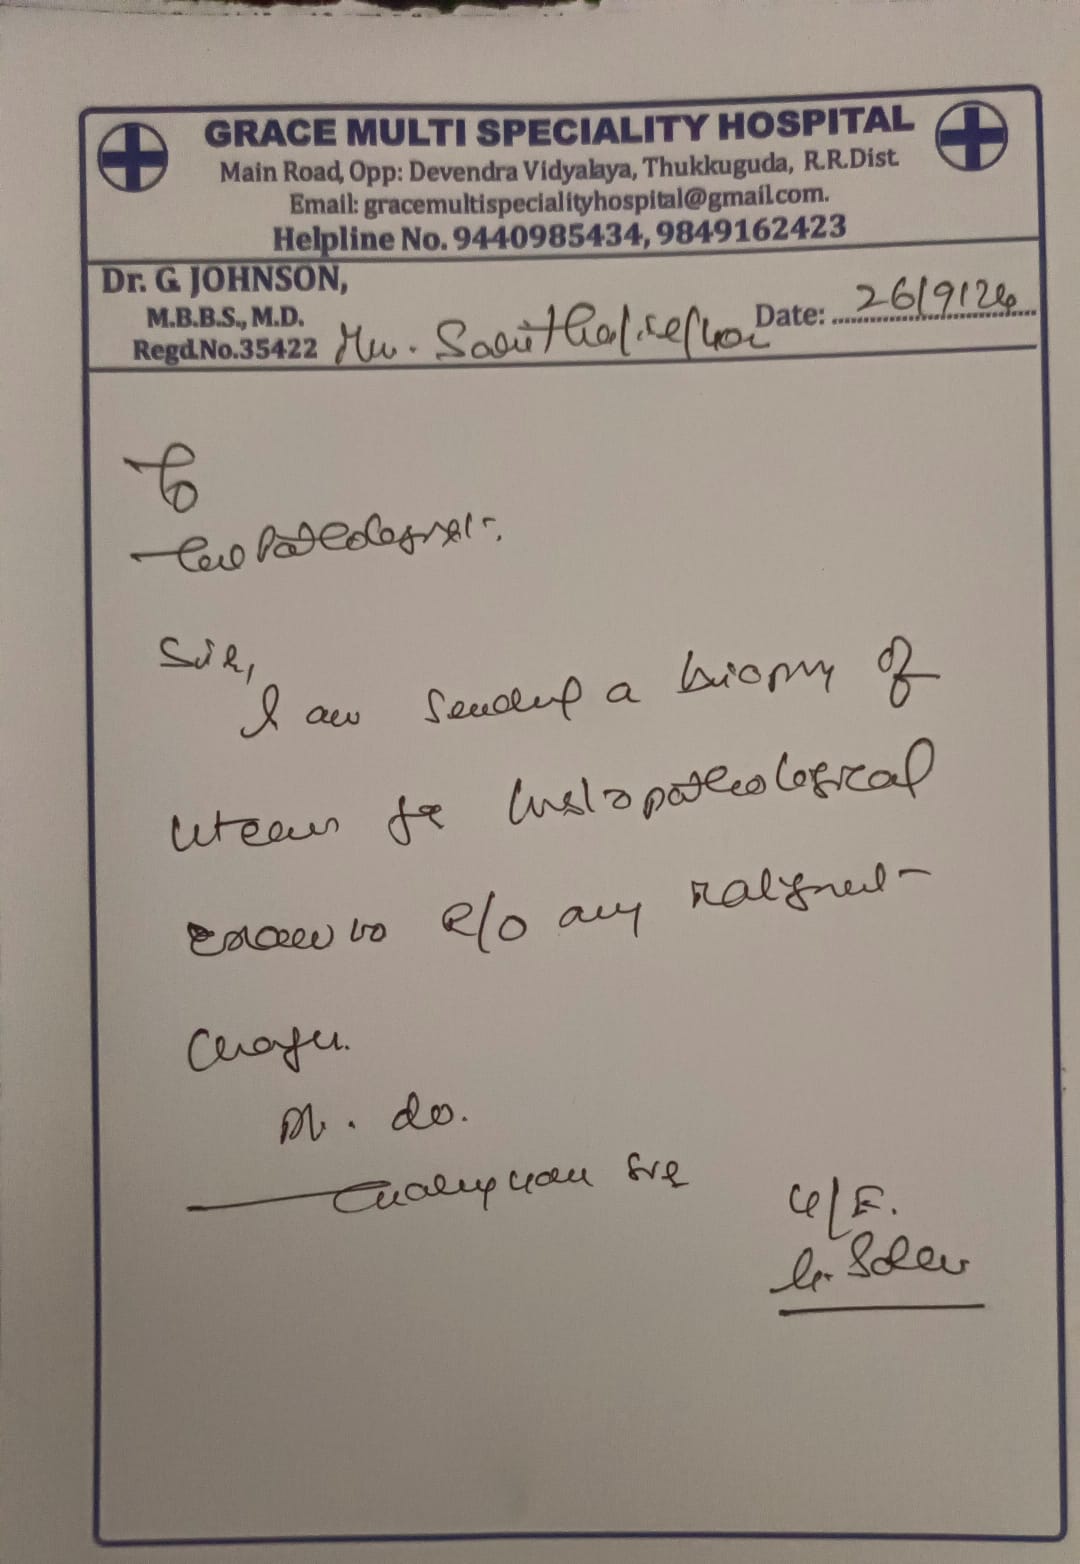 GRACE MULTI SPECIALITY HOSPITAL
Main Road, Opp: Devendra Vidyalaya, Thukkuguda, R.R.Dist
Email: gracemultispecialityhospital@gmail.com.
Helpline No. 9440985434, 9849162423
Dr. G. JOHNSON,
M.B.B.S., M.D.
Regd.No.35422
Date: 26/9/24
To
The Pathologist,
Sir,
I am sending a biopsy of
uterus for histopathological
exam to R/O any malignant
changes.
Pl. do.
Thanking you sir